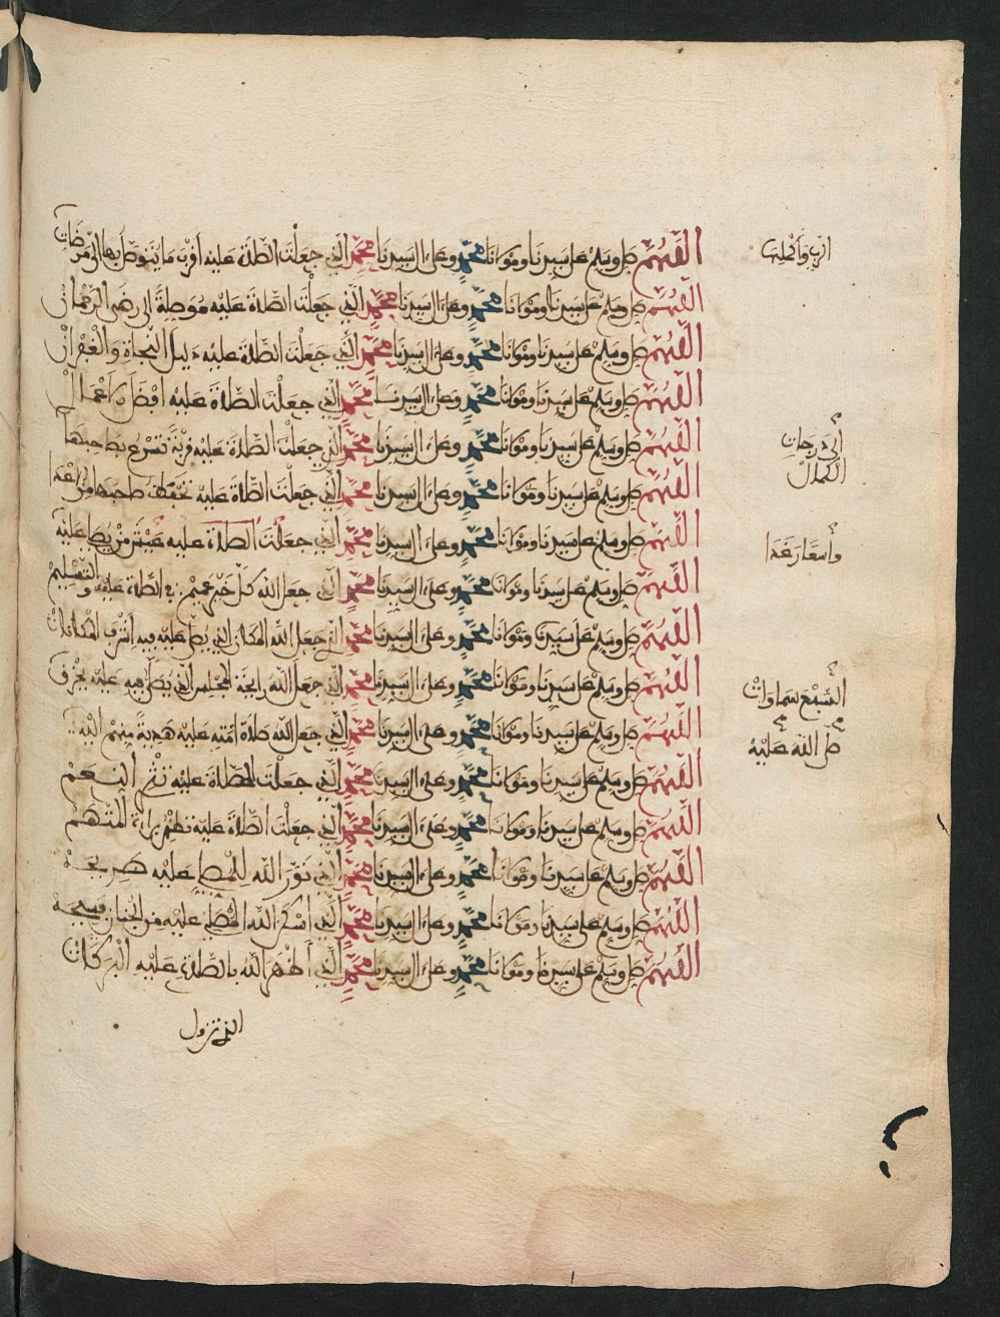 اللهم صل وسلم على سيدنا ومولانا محمد وعلى ءال سيدنا محمد الذي جعلت الصلاة عليه أقرب ما يتوصل بها إلى مرضات
اللهم صل وسلم على سيدنا ومولانا محمد وعلى ءال سيدنا محمد الذي جعلت الصلاة عليه موصلة إلى رضى الرحمان
اللهم صل وسلم على سيدنا ومولانا محمد وعلى ءال سيدنا محمد الذي جعلت الصلاة عليه دليل النجاة والغفران
اللهم صل وسلم على سيدنا ومولانا محمد وعلى ءال سيدنا محمد الذي جعلت الصلاة عليه افضل
اللهم صل وسلم على سيدنا ومولانا محمد وعلى ءال سيدنا محمد الذي جعلت الصلاة عليه قربة تسرع بصاحبها
إلى درجات
الكمال
اللهم صل وسلم على سيدنا ومولانا محمد وعلى ءال سيدنا محمد الذي جعلت الصلاة عليه صاحبها من
اللهم صل وسلم على سيدنا ومولانا محمد وعلى ءال سيدنا محمد الذي جعلت الصلاة عليه من يصلي عليه
واسعا رغدا
اللهم صل وسلم على سيدنا ومولانا محمد وعلى ءال سيدنا محمد الذي جعل الله كل خير عميم في الصلاة عليه والتسليم
اللهم صل وسلم على سيدنا ومولانا محمد وعلى ءال سيدنا محمد الذي جعل الله المكان الذي يصلى عليه فيه اشرف المكانات
اللهم صل وسلم على سيدنا ومولانا محمد وعلى ءال سيدنا محمد الذي جعل الله رايحة المجلس الذي يصلى فيه عليه يخرق
السبع سماوات
اللهم صل وسلم على سيدنا ومولانا محمد وعلى ءال سيدنا محمد الذي جعل الله صلاة امته عليه هدية منهم اليه
صلى الله عليه
اللهم صل وسلم على سيدنا ومولانا محمد وعلى ءال سيدنا محمد الذي جعلت الصلاة عليه النعم
اللهم صل وسلم على سيدنا ومولانا محمد وعلى ءال سيدنا محمد الذي جعلت الصلاة عليه تظهر براءة المتهم
اللهم صل وسلم على سيدنا ومولانا محمد وعلى ءال سيدنا محمد الذي نور الله للمصلي عليه ضريحه
اللهم صل وسلم على سيدنا ومولانا محمد وعلى ءال سيدنا محمد الذي اسكن الله المصلي عليه من الجنان فسيحه
اللهم صل وسلم على سيدنا ومولانا محمد وعلى ءال سيدنا محمد الذي أظهر الله بالصلاة عليه البركات